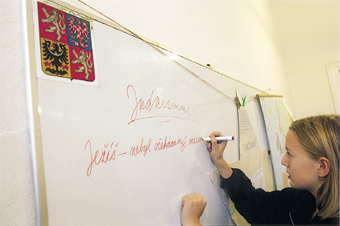 Judaismus
Ježíš – nebyl očekávaný mes